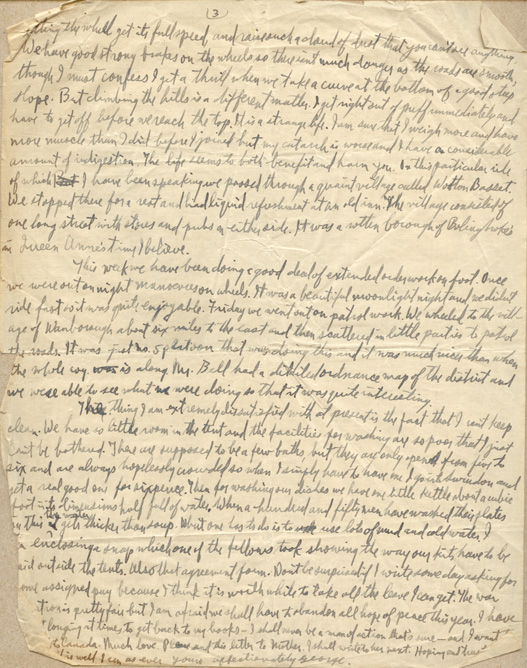 (3)
thing the wheel gets full speed and raise such a cloud of dust that you can't see anything.
We have good strong brakes on the wheels so there isn't much danger as the roads are smooth
though I must confess I get a thrill when we take a curve at the bottom of a good steep
slope. But climbing the hills is a different matter. I get right out of puff immediately and
have to get off before we reach the top. It is a strange life. I am sure that I weigh more and have
more muscle than I did before I joined but my catarrh is worse and I have a considerable
amount of indigestion. The life seems to both benefit and harm you. In this particular ride
of which I have been speaking we passed through a quaint village called Wotton Basset.
We stopped there for a rest and had liquid refreshment at an old inn. The village consisted of
one long street with stores and pubs on either side. It was a rotten borough of Bolingbroke's
in Queen Anne's time I believe.
This week we have been doing a good deal of extended order work on foot. Once
we were out on night manoevres on wheels. It was a beautiful moonlight night and we didn't
ride fast so it was quite enjoyable. Friday we went out on patrol work. We wheeled to the vill-
age of Wanborough about six miles to the east and then scattered in little parties to patrol
the roads. It was just no. 5 platoon that was doing this and it was much nicer than when
the whole coy is along. Mr. Ball had a detailed ordnance map of the district and
we were able to see what we were doing so that it was quite interesting.
The thing I am extremely dissatisfied with at present is the fact that I can't keep
clean. We have so little room in the tent and the facilities for washing are so poor that I just
can't be bothered. There are supposed to be a few baths, but they are only open from five to
six and are always hopelessly crowded so when I simply have to have one I go into Swindon and
get a real good one for sixpence. Then for washing our dishes we have one little kettle about a cubic
foot in dimensions half full of water. When a hundred and fifty men have washed their plates
in this water it gets thicker than soup. What one has to do is to use lots of mud and old water. I
am enclosing a snap which one of the fellows took showing the way our kits have to be
laid outside the tents. Also that agreement form. Don't be surprised if I write some day asking for
some assigned pay because I think it is worth while to take all the leave I can get. The war
situation is pretty fair but I am afraid we shall have to abandon all hope of peace this year. I have
longing at times to get back to my books – I shall never be a man of action that's sure – and I want
to Canada. Much love. Please send this letter to Mother. I shall write her next. Hoping and trust
is well I am as ever yours affectionately George.